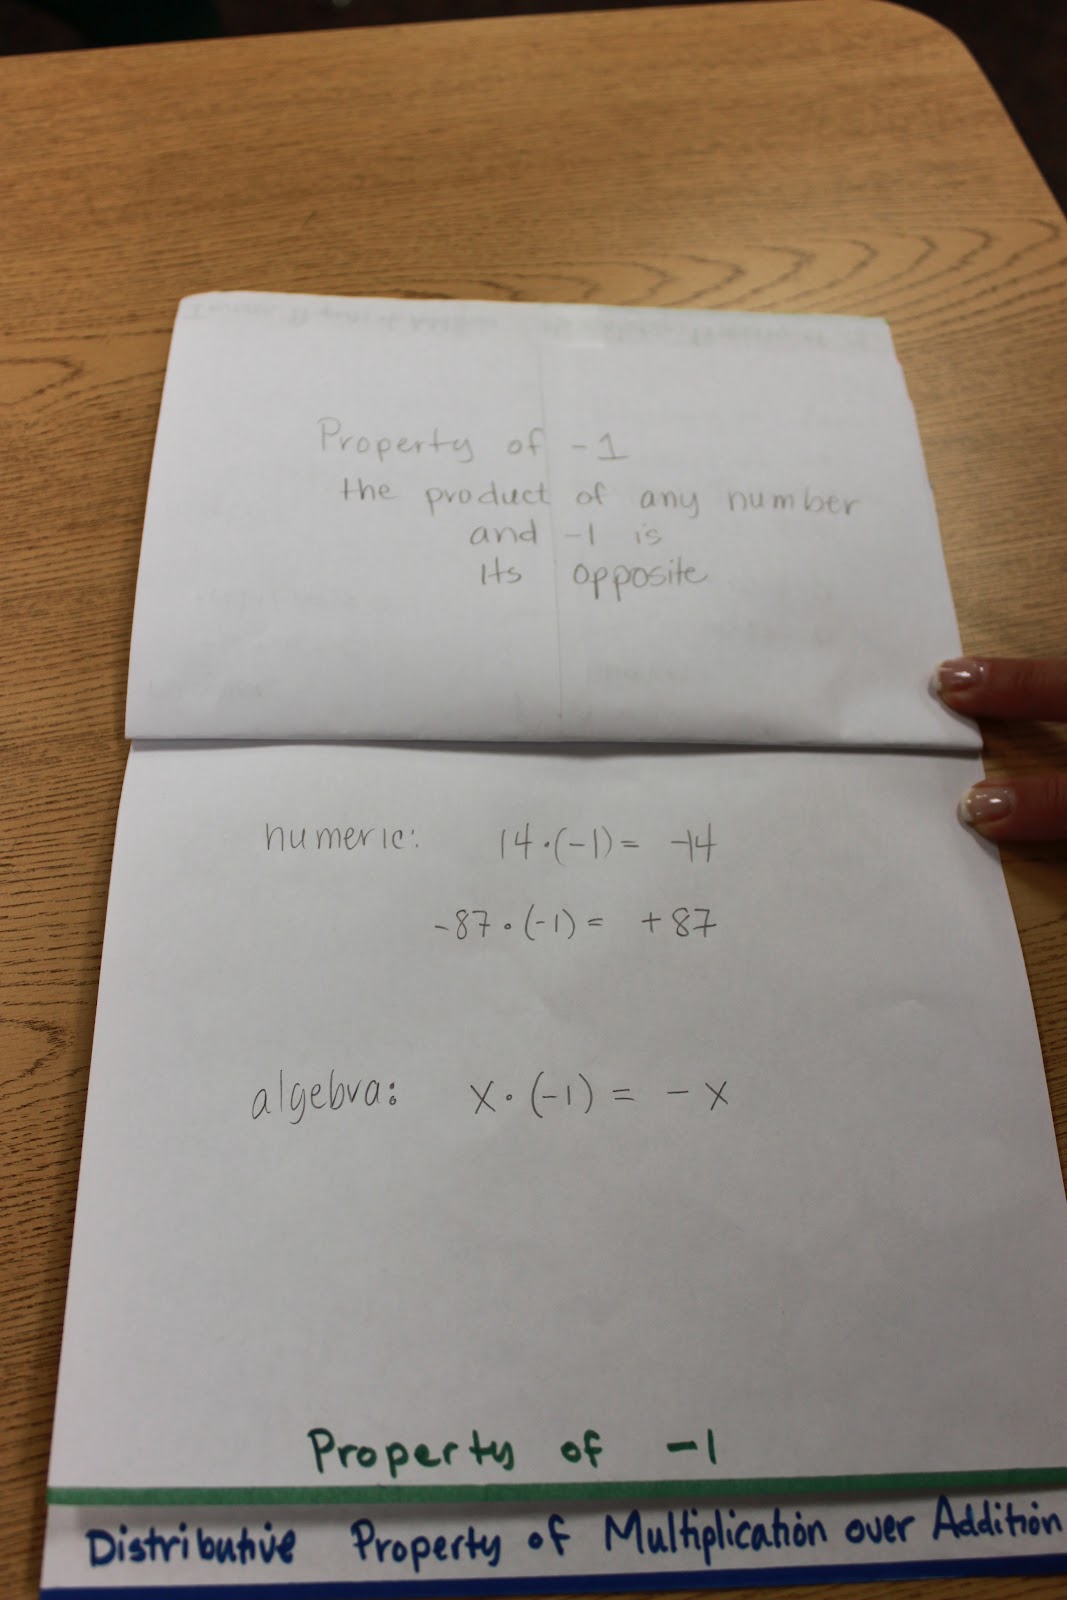 Property of -1
the product of any number
and -1 is
its opposite
numeric: 14·(-1)= -14
-87·(-1)= +87
algebra: x·(-1) = -x
Property of -1
Distributive Property of Multiplication over Addition